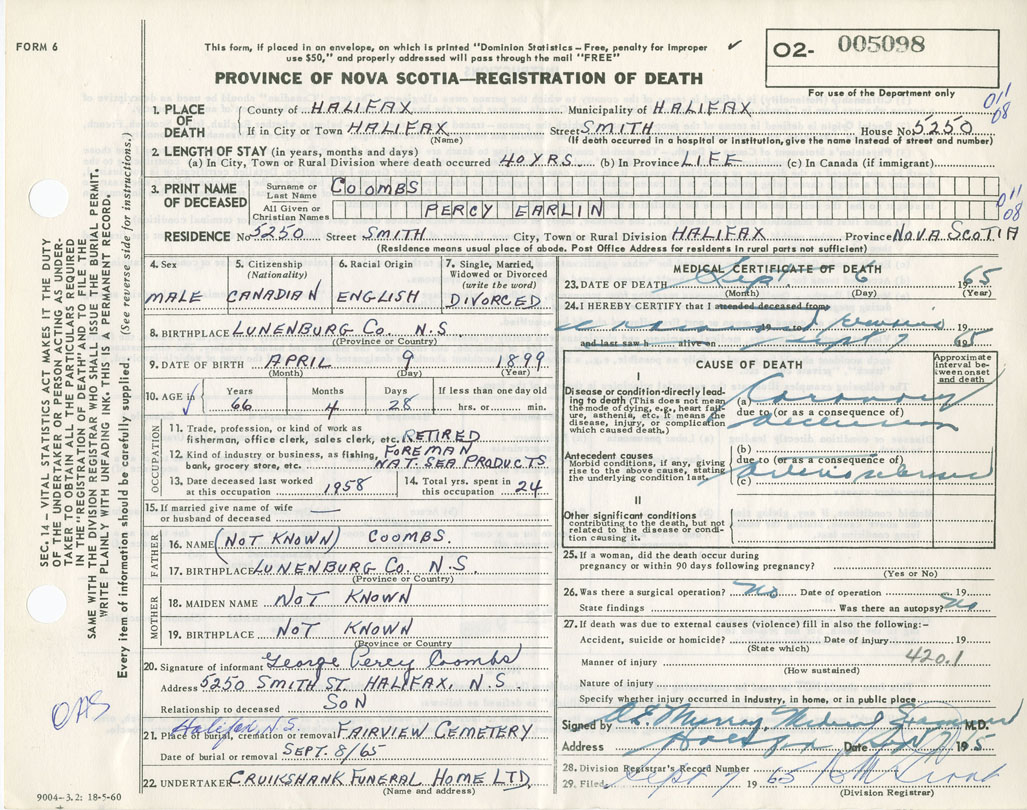 FORM 6
This form, if placed in an envelope, on which is printed "Dominion Statistics – Free, penalty for improper
use $50," and properly addressed will pass through the mail "FREE"
PROVINCE OF NOVA SCOTIA—REGISTRATION OF DEATH
02- 005098
For use of the Department only
011
08
1. PLACE OF DEATH
County of HALIFAX Municipality of HALIFAX
If in City or Town HALIFAX Street SMITH House No 5250
(Name) (If death occurred in a hospital or institution, give the name instead of street and number)
2. LENGTH OF STAY (in years, months and days)
(a) In City, Town or Rural Division where death occurred 40 YRS (b) In Province LIFE (c) In Canada (if immigrant)
3. PRINT NAME OF DECEASED
Surname or Last Name COOMBS
All Given or Christian Names PERCY EARLIN
011
08
RESIDENCE No 5250 Street SMITH City, Town or Rural Division HALIFAX Province NOVA SCOTIA
(Residence means usual place of abode. Post Office Address for residents in rural parts not sufficient)
4. Sex MALE
5. Citizenship (Nationality) CANADIAN
6. Racial Origin ENGLISH
7. Single, Married, Widowed or Divorced (write the word) DIVORCED
8. BIRTHPLACE LUNENBURG CO. N.S.
(Province or Country)
9. DATE OF BIRTH APRIL 9 1899
(Month) (Day) (Year)
10. AGE in Years 66 Months 4 Days 28 If less than one day old hrs. or min.
OCCUPATION
11. Trade, profession, or kind of work as
fisherman, office clerk, sales clerk, etc. RETIRED
12. Kind of industry or business, as fishing, FOREMAN
bank, grocery store, etc. NAT. SEA PRODUCTS
13. Date deceased last worked at this occupation 1958
14. Total yrs. spent in this occupation 24
15. If married give name of wife or husband of deceased —
FATHER
16. NAME (NOT KNOWN) COOMBS.
17. BIRTHPLACE LUNENBURG CO. N.S.
(Province or Country)
MOTHER
18. MAIDEN NAME NOT KNOWN
19. BIRTHPLACE NOT KNOWN
(Province or Country)
20. Signature of informant George Percy Coombs
Address 5250 SMITH ST. HALIFAX, N.S.
Relationship to deceased SON
OAS
Halifax, N.S.
21. Place of burial, cremation or removal FAIRVIEW CEMETERY
Date of burial or removal SEPT. 8/65
22. UNDERTAKER CRUIKSHANK FUNERAL HOME LTD.
(Name and address)
9004–3.2: 18-5-60
MEDICAL CERTIFICATE OF DEATH
23. DATE OF DEATH Sept 6 1965
(Month) (Day) (Year)
24. I HEREBY CERTIFY that I attended deceased from
19 to 19
and last saw h alive on Sept 7 1965
CAUSE OF DEATH
Approximate interval between onset and death
I
Disease or condition directly leading to death (This does not mean the mode of dying, e.g., heart failure, asthenia, etc. It means the disease, injury, or complication which caused death.)
(a) Coronary
due to (or as a consequence of)
occlusion
Antecedent causes
Morbid conditions, if any, giving rise to the above cause, stating the underlying condition last.
(b)
due to (or as a consequence of)
(c)
II
Other significant conditions
contributing to the death, but not related to the disease or condition causing it.
25. If a woman, did the death occur during
pregnancy or within 90 days following pregnancy?
(Yes or No)
26. Was there a surgical operation? No Date of operation 19
State findings Was there an autopsy? No
27. If death was due to external causes (violence) fill in also the following:–
Accident, suicide or homicide? Date of injury 19
(State which)
420.1
Manner of injury
(How sustained)
Nature of injury
Specify whether injury occurred in industry, in home, or in public place
Signed by Murray, Medical Examiner M.D.
Address Halifax Date Sept 7 1965
28. Division Registrar's Record Number
29. Filed Sept 7 1965
(Division Registrar)
SEC. 14 – VITAL STATISTICS ACT MAKES IT THE DUTY
OF THE UNDERTAKER OR PERSON ACTING AS UNDER-
TAKER TO OBTAIN ALL THE PARTICULARS REQUIRED
IN THE "REGISTRATION OF DEATH" AND TO FILE THE
SAME WITH THE DIVISION REGISTRAR WHO SHALL ISSUE THE BURIAL PERMIT.
WRITE PLAINLY WITH UNFADING INK. THIS IS A PERMANENT RECORD.
Every item of information should be carefully supplied. (See reverse side for instructions.)